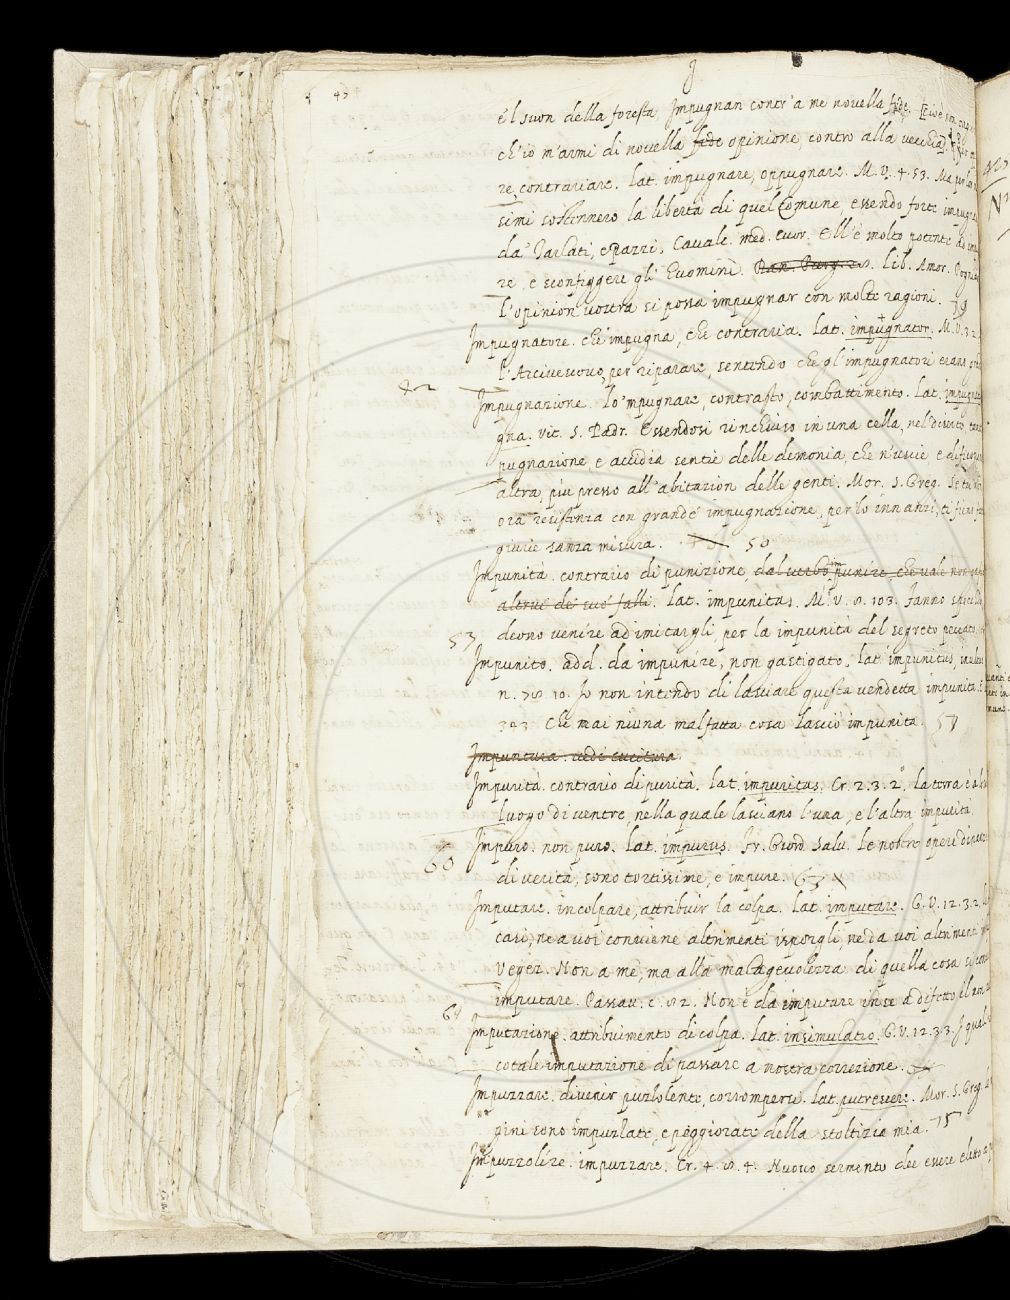 I
47
e'l suon della foresta Impugnan contr'a me novella fede. Cioè
ch'io m'armi di novella fede opinione, contro alla vecchia.
re, contrariare. Lat. impugnare, oppugnare. M. V. 4. 53. Ma
simi sostennero la libertà di quel Comune, essendo forte
da Tarlati, e Pazzi. Cavalc. med. cuor. Ell'è molto potente
re, e sconfiggere gli huomini. Dan. Purg. Lib. Amor.
l'opinion vostra si possa impugnar con molte ragioni.
Impugnatore. che impugna, che contraria. Lat. impugnator. M. V. 3. 2.
l'Arcivescovo, per riparare, sentendo che gl'impugnatori erano
Impugnazione. Lo 'mpugnare, contrasto, combattimento. Lat.
gna. Vit. S. Padr. Essendosi rinchiuso in una cella, nel diserto
pugnazione, e accidia sentie delle demonia, che n'uscie e
altra, più presso all'abitazion delle genti. Mor. S. Greg. Se tu
ora resistenza con grande impugnazione, per lo innanzi, ti
giurie sanza misura. 50
Impunità. contrario di punizione, dal verbo punire, che vale non
altrui de' suo' falli. Lat. impunitas. M. V. 8. 103. Fanno
deono venire ad imitargli, per la impunità del segreto peccato.
53
Impunito. add. da impunire, non gastigato. Lat. impunitus,
n. 78 10. Io non intendo di lasciare questa vendetta impunita.
393 Che mai niuna malfatta cosa lasciò impunita. 57
Impuntura. vedi cucitura.
Impurità. contrario di purità. Lat. impuritas. Cr. 2. 3. 2. La terra è
luogo di ventre, nella quale lasciano l'una, e l'altra impurità.
60
Impuro. non puro. Lat. impurus. Fr. Giord. Salv. Le nostre opere
di verità, sono tortissime, e impure. 63
Imputare. incolpare, attribuir la colpa. Lat. imputare. G. V. 12. 3. 2.
caso, ne a voi conviene altrimenti isporgli, ne da voi altrimenti
Veger. Non a me, ma alla malagevolezza di quella cosa si
imputare. Passav. c. 82. Non è da imputare in se a difetto
Imputazione. attribuimento di colpa. Lat. insimulatio. G. V. 12. 3. 3. I
cotale imputazione di passare a nostra correzione.
Impuzzare. divenir puzzolente, corrompersi. Lat. putrescere. Mor. S. Greg.
gini sono impuzlate, e peggiorate della stoltizia mia. 75
Impuzzolire. impuzzare. Cr. 4. 8. 4. Nuovo sermento dee essere eletto